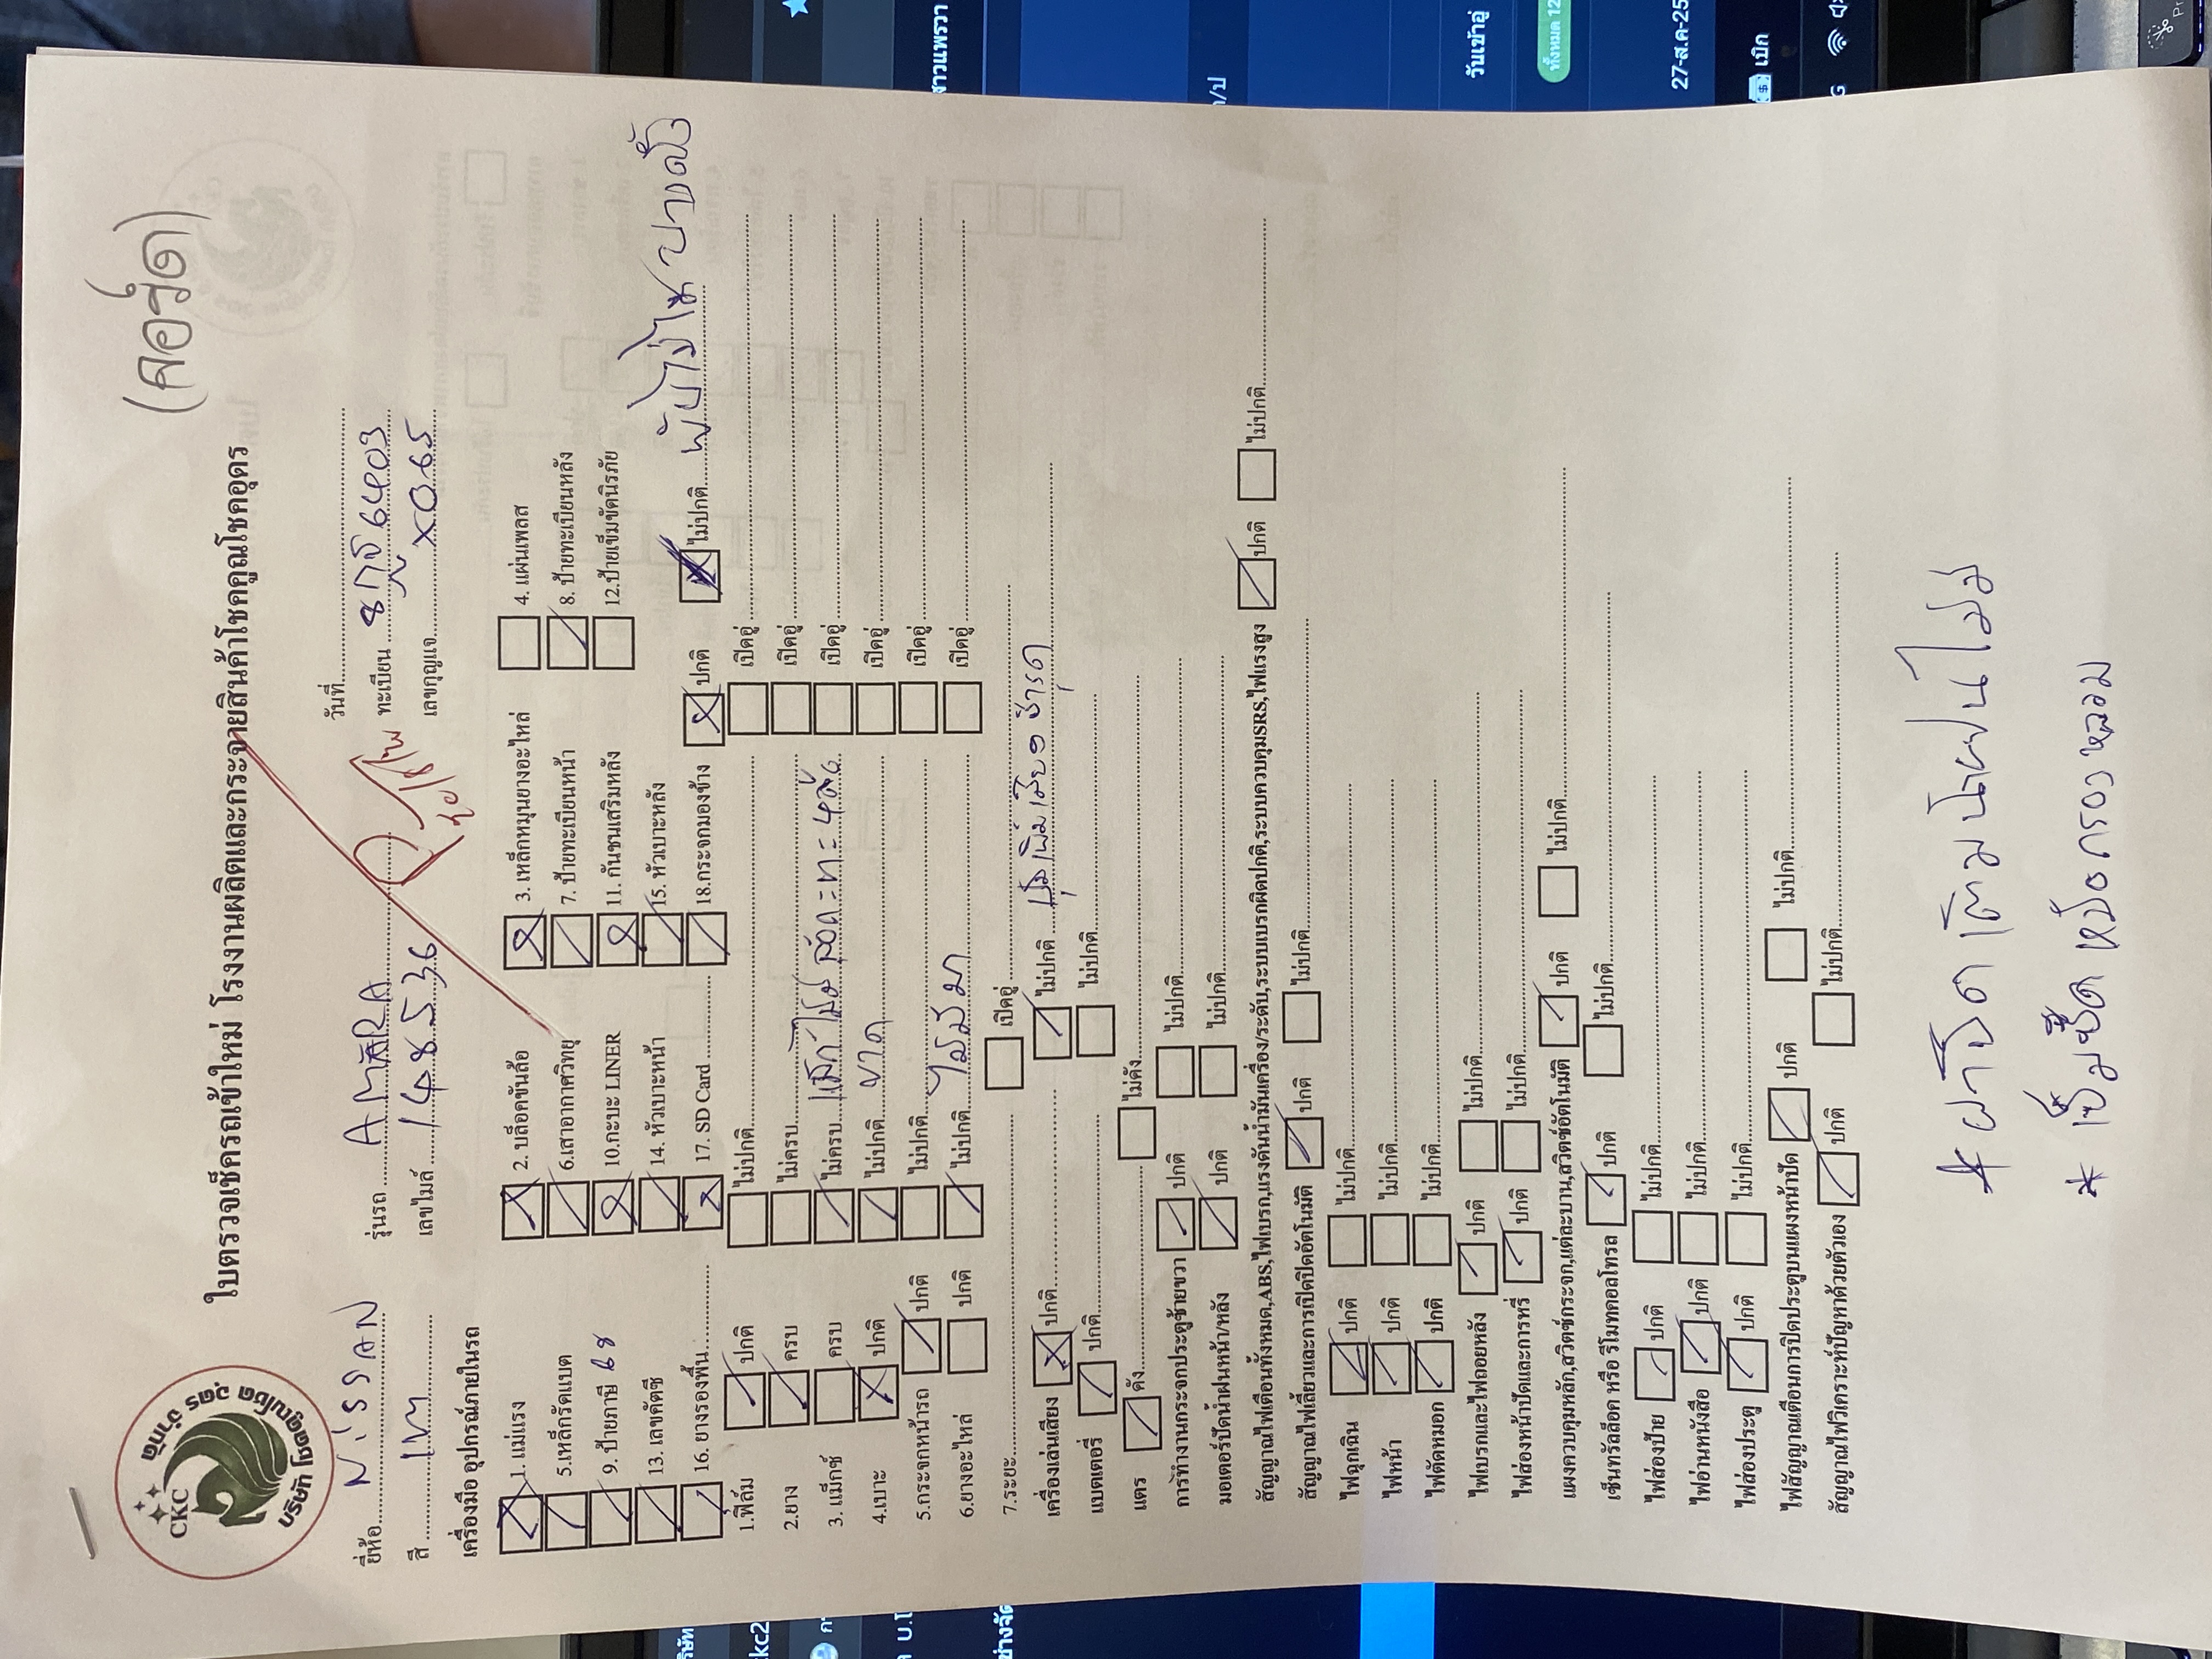 (คอร์ด)
CKC
บริษัท โชคคูณโชค อุดร จำกัด
ใบตรวจเช็ครถเข้าใหม่ โรงงานผลิตและกระจายสินค้าโชคคูณโชคอุดร
วันที่
ยี่ห้อ NiSSAN รุ่นรถ AMERA ทะเบียน 6403
สี เทา เลขไมล์ 148536 เลขกุญแจ X065
เครื่องมือ อุปกรณ์ภายในรถ
1. แม่แรง 2. บล็อคขันล้อ 3. เหล็กหมุนยางอะไหล่ 4. แผ่นเพลส
5.เหล็กรัดแบต 6.เสาอากาศวิทยุ 7. ป้ายทะเบียนหน้า 8. ป้ายทะเบียนหลัง
9. ป้ายภาษี 68 10.กะบะ LINER 11. กันชนเสริมหลัง 12.ป้ายเข็มขัดนิรภัย
13. เลขคัดซี 14. หัวเบาะหน้า 15. หัวเบาะหลัง
16. ยางรองพื้น 17. SD Card 18.กระจกมองข้าง ปกติ ไม่ปกติ พับไม่ไหวบางครั้ง
1.ฟิล์ม ปกติ ไม่ปกติ เปิดอู่
2.ยาง ครบ ไม่ครบ เปิดอู่
3. แม็กซ์ ครบ ไม่ครบ เปิดอู่
4.เบาะ ปกติ ไม่ปกติ ขาด เปิดอู่
5.กระจกหน้ารถ ปกติ ไม่ปกติ เปิดอู่
6.ยางอะไหล่ ปกติ ไม่ปกติ ไม่มีมา เปิดอู่
7.ระยะ เปิดอู่
เครื่องเล่นเสียง ปกติ ไม่ปกติ ปุ่มเพิ่มเสียงชำรุด
แบตเตอรี่ ปกติ ไม่ปกติ
แตร ดัง ไม่ดัง
การทำงานกระจกประตูซ้ายขวา ปกติ ไม่ปกติ
มอเตอร์ปัดน้ำฝนหน้า/หลัง ปกติ ไม่ปกติ
สัญญาณไฟเตือนทั้งหมด,ABS,ไฟเบรก,แรงดันน้ำมันเครื่อง/ระดับ,ระบบเบรกผิดปกติ,ระบบควบคุมSRS,ไฟแรงสูง ปกติ ไม่ปกติ
สัญญาณไฟเลี้ยวและการเปิดปิดอัตโนมัติ ปกติ ไม่ปกติ
ไฟฉุกเฉิน ปกติ ไม่ปกติ
ไฟหน้า ปกติ ไม่ปกติ
ไฟตัดหมอก ปกติ ไม่ปกติ
ไฟเบรกและไฟถอยหลัง ปกติ ไม่ปกติ
ไฟส่องหน้าปัดและการหรี่ ปกติ ไม่ปกติ
แผงควบคุมหลัก,สวิตซ์กระจก,แต่ละบาน,สวิตซ์อัตโนมัติ ปกติ ไม่ปกติ
เซ็นทรัลล็อค หรือ รีโมทคอลโทรล ปกติ ไม่ปกติ
ไฟส่องป้าย ปกติ ไม่ปกติ
ไฟอ่านหนังสือ ปกติ ไม่ปกติ
ไฟส่องประตู ปกติ ไม่ปกติ
ไฟสัญญาณเตือนการปิดประตูบนแผงหน้าปัด ปกติ ไม่ปกติ
สัญญาณไฟวิเคราะห์ปัญหาด้วยตัวเอง ปกติ ไม่ปกติ
* ฝาปิดเติมน้ำฝนไม่มี
* เข็มขีดหม้อกรองหลอม
วันเข้าอู่
ทั้งหมด 12
27-ส.ค-25
เบิก